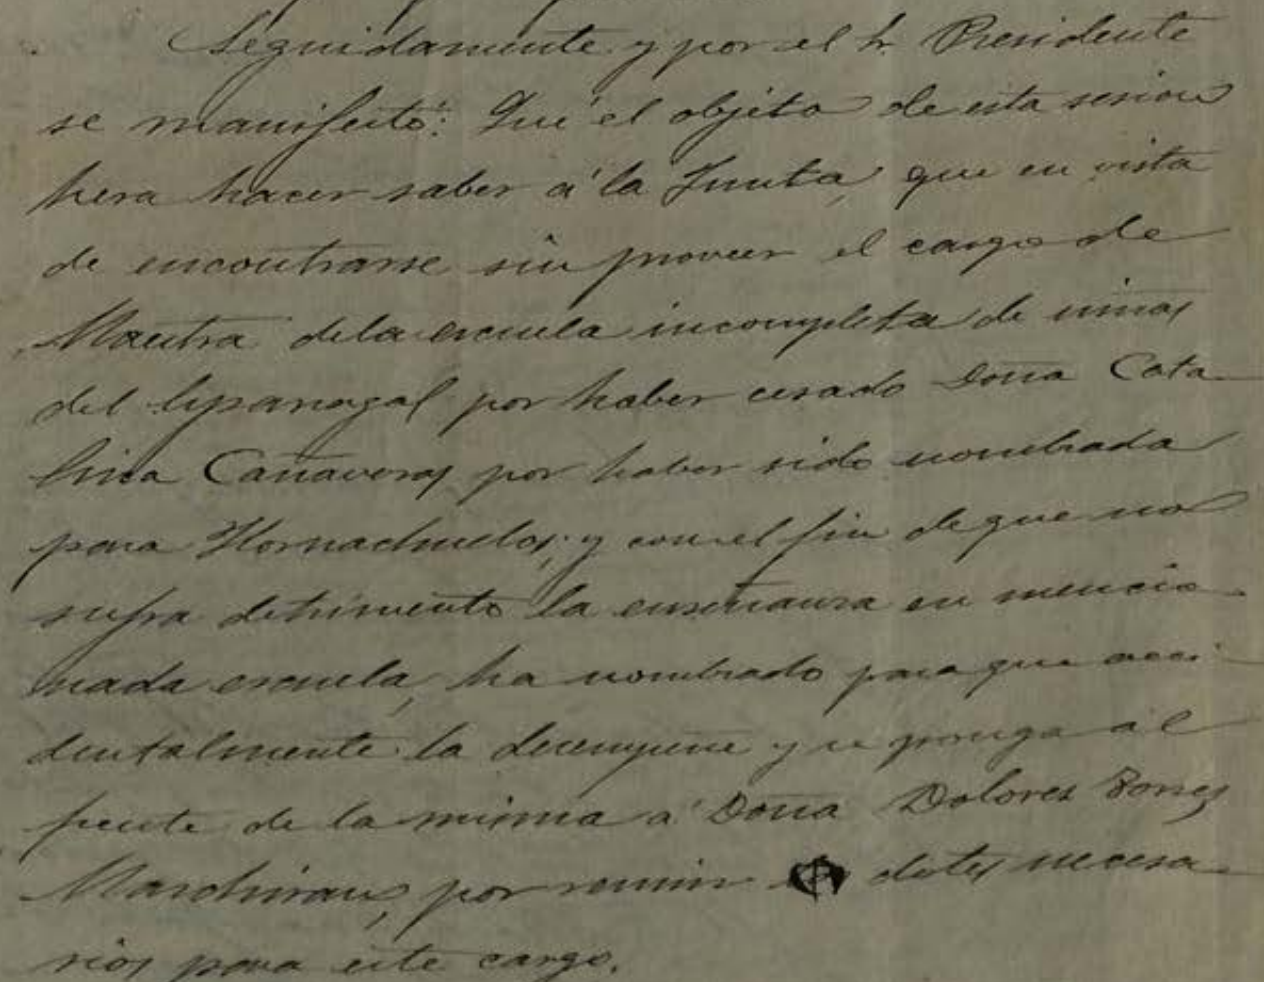 Seguidamente y por el Sr. Presidente
se manifestó: Que el objeto de esta sesion
hera hacer saber á la Junta, que en vista
de encontrarse sin proveer el cargo de
Maestra de la escuela incompleta de niñas
del Esparragal por haber cesado Doña Cata-
lina Cañaveras por haber sido nombrada
para Hornachuelos; y con el fin de que no
sufra detrimento la enseñanza en mencio-
nada escuela, ha nombrado para que acci-
dentalmente la desempeñe y se ponga al
frente de la misma a Doña Dolores Torres
por reunir dotes necesa-
rios para este cargo.